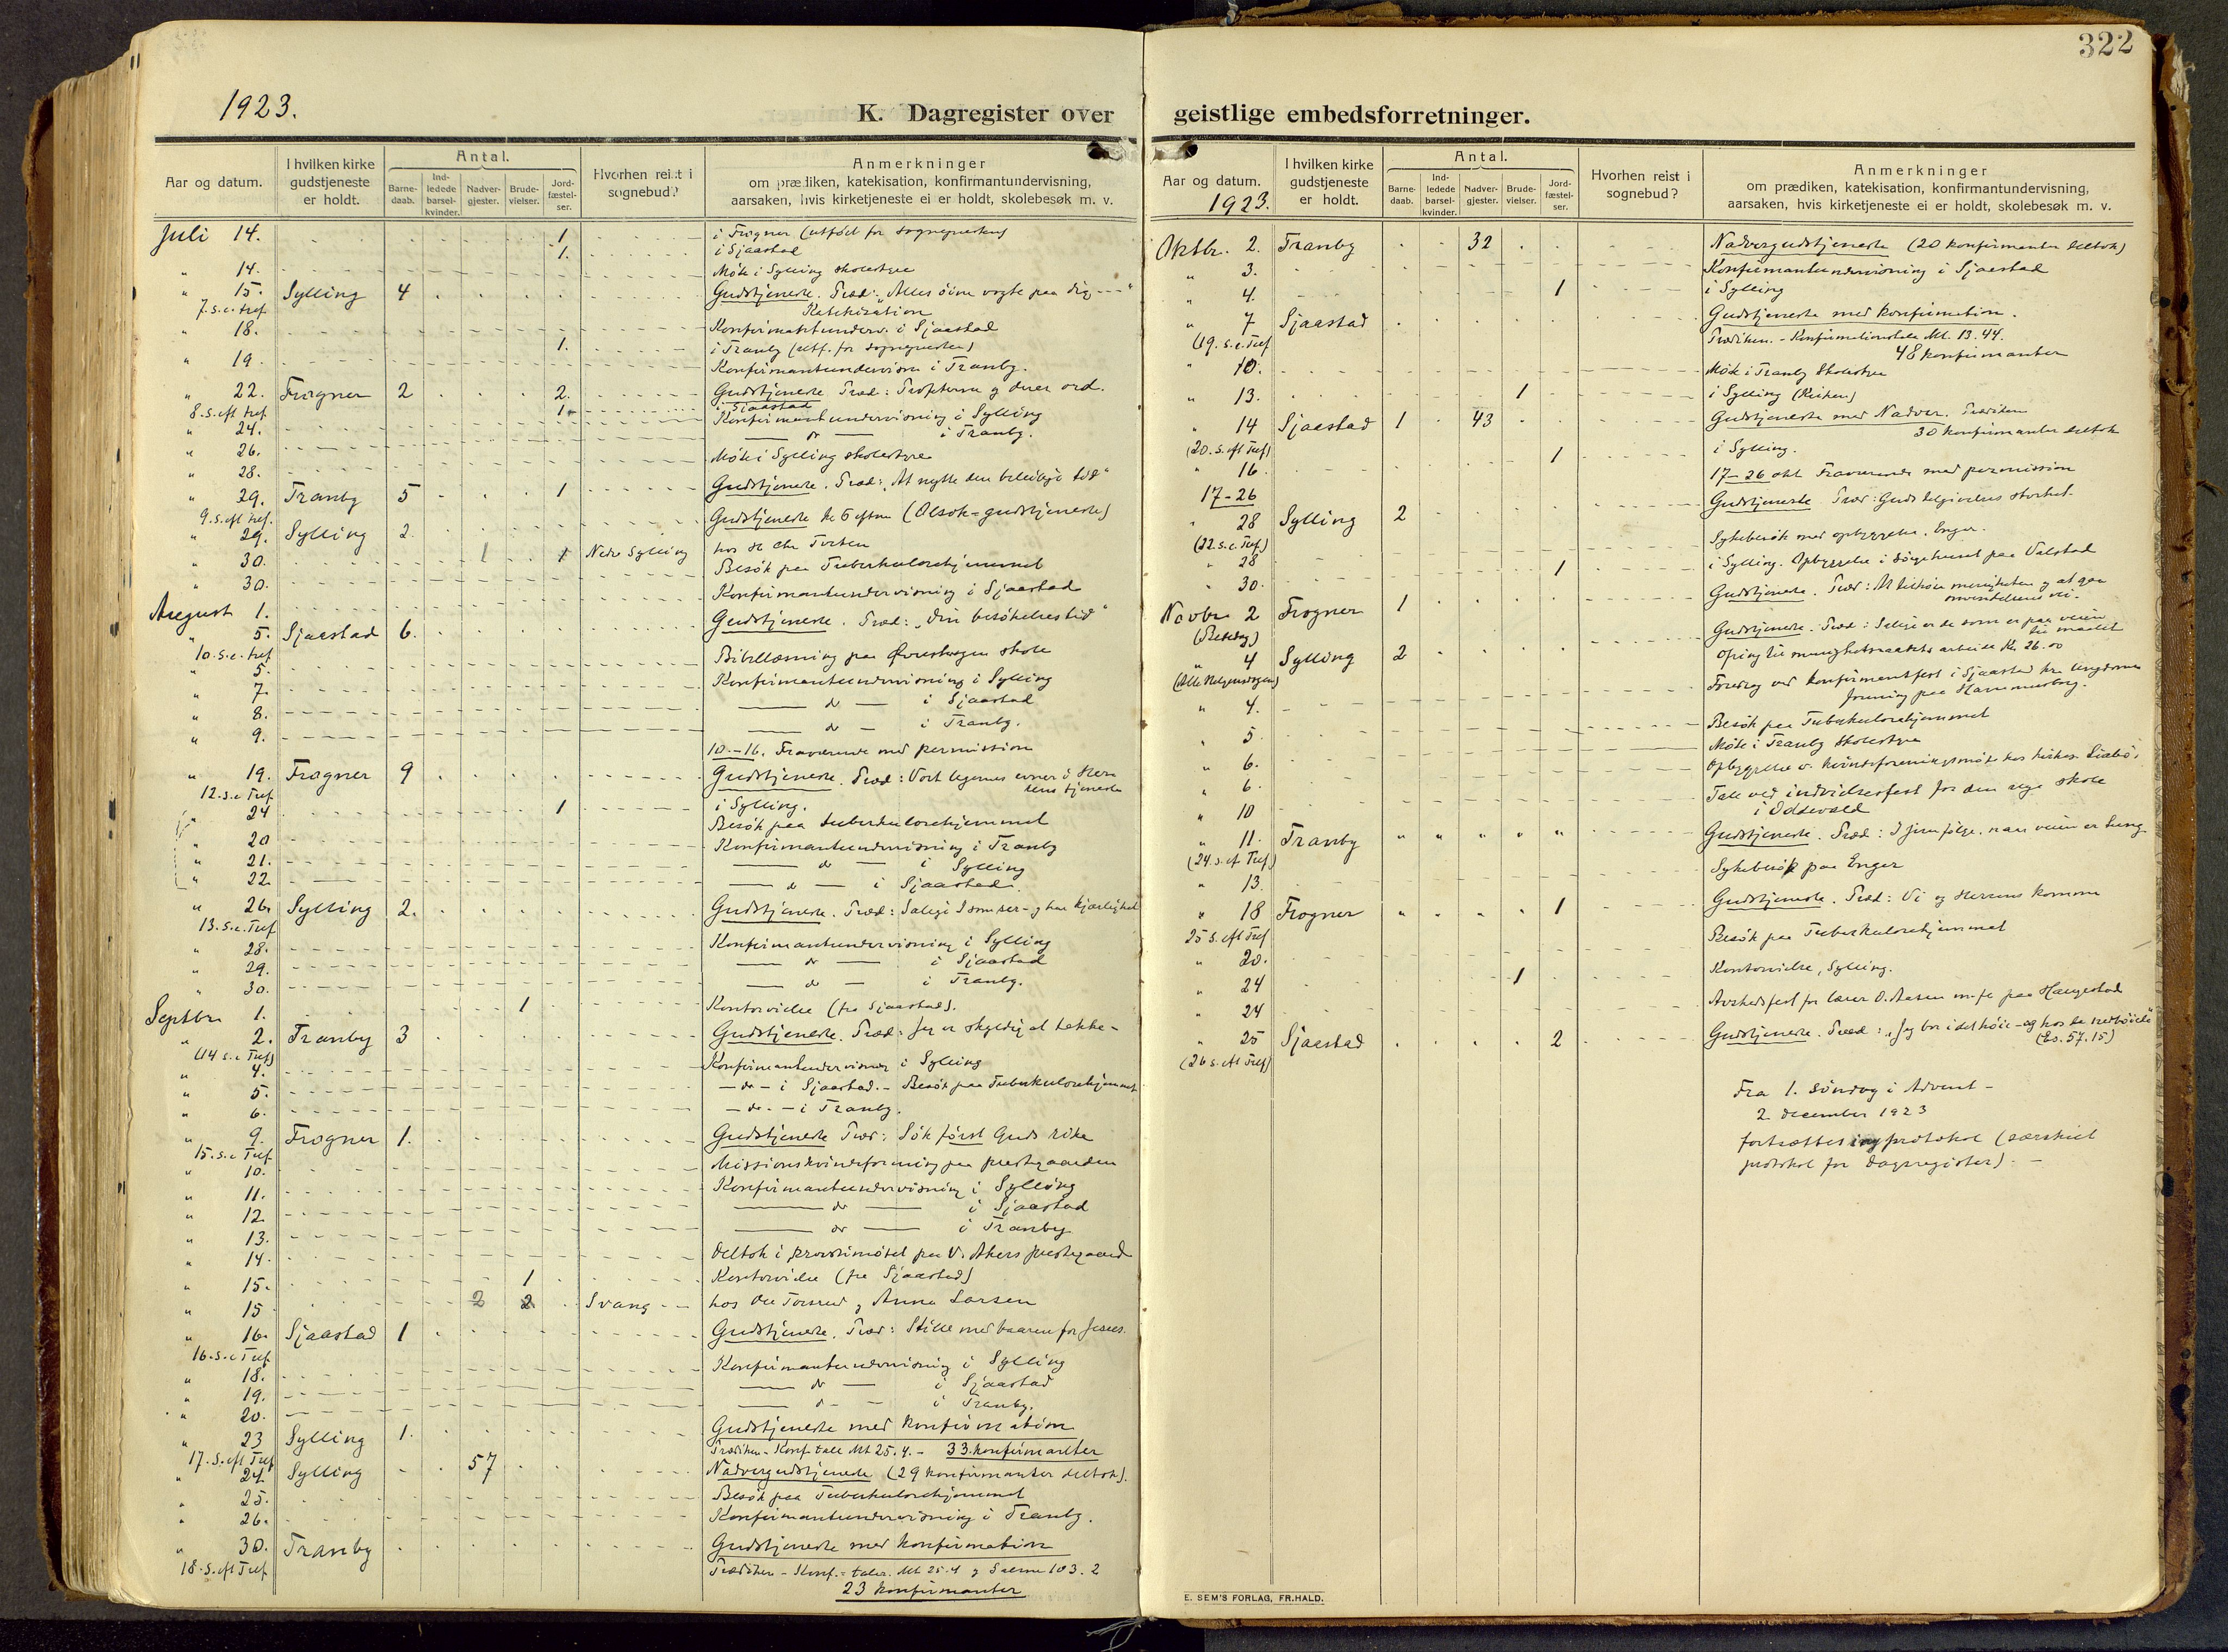 1923.
K. Dagregister over
Aar og datum.
I hvilken kirke gudstjeneste er holdt.
Antal.
Barnedaab.
Indledede barselkvinder.
Nadvergjester.
Brudevielser.
Jordfæstelser.
Hvorhen reist i sognebud?
Anmerkninger
om prædiken, katekisation, konfirmantundervisning,
aarsaken, hvis kirketjeneste ei er holdt, skolebesøk m. v.
Juli 14. 1 i Frogner (utført for sognepresten)
1. i Sjaastad
" 14. Møte i Sylling skolestyre
" 15. Sylling 4 Gudstjeneste. Præd: "Alles öine vogte paa dig ---"
7. s. e. tref. Katekisation
" 18. Konfirmantunderv. i Sjaastad
1. i Tranby (utf. for sognepresten)
" 19. Konfirmantundervisn. i Tranby.
" 22. Frogner 2 2. Gudstjeneste Præd: Profeterne og deres ord.
8. s. eft tref. 1 i Sjaastad
" 24. Konfirmantundervisning i Sylling
" 26. — do — i Tranby.
" 28. Møte i Sylling skolestyre
" 29. Tranby 5 1 Gudstjeneste. Præd: "At nytte den beleilige tid"
9. s. eft tref.
" 29. Sylling 2. Gudstjeneste kl 5 eftm (Olsok=gudstjeneste)
" 30. 1 1 Nedre Sylling hos
" 30. Besøk paa Tuberkulosehjemmet
August 1. Konfirmantundervisning i Sjaastad
" 5. Sjaastad 6. Gudstjeneste. Præd: "din besøkelsestid"
10. s. e. tref
" 5. Bibellæsning paa Øvresbergen skole
" 7. Konfirmantundervisning i Sylling
" 8. — do — i Sjaastad
" 9. — do — i Tranby.
10.-16. Fraværende med permission
" 19. Frogner 9 Gudstjeneste. Præd: Vort legemes evner i Herrens tjeneste
12. s. e Tref
" 24 1 i Sylling.
" 20 Besøk paa tuberkulosehjemmet
" 21. Konfirmantundervisning i Tranby
" 22 — do — i Sylling
— do — i Sjaastad.
" 26. Sylling 2. Gudstjeneste. Præd: Salige I som ser - og har kjærlighet
13. s. e. Tref
" 28. Konfirmantundervisning i Sylling
" 29. — do — i Sjaastad
" 30. — do — i Tranby.
Septbr 1. 1 Kontorvielse (fra Sjaastad).
" 2. Tranby 3 Gudstjeneste. Præd: Jeg er skyldig at takke -
(14 s. e Tref)
" 4. Konfirmantundervisning i Sylling
" 5. - do - i Sjaastad. - Besøk paa Tuberkulosehjemmet
" 6. - do. - i Tranby.
" 9. Frogner 1. Gudstjeneste Præd: Søk først Guds rike
15. s. e Tref
" 10. Missionskvindeforening paa prestegaarden
" 11. Konfirmantundervisning i Sylling
" 12 — do — i Sjaastad
" 13. — do — i Tranby
" 14. Deltok i provstimøtet paa V. Akers prestegaard
" 15. 1 Kontorvielse (fra Sjaastad)
" 15 2 2 Svang hos Ole Torsrud og Anna Larsen
" 16. Sjaastad 1 Gudstjeneste. Præd: Stille med baaren for Jesus.
16. s. e Tref
" 18. Konfirmantundervisning i Sylling
" 19. — do — i Sjaastad
" 20. — do — i Tranby.
" 23 Sylling 1. Gudstjeneste med konfirmation
17. s. eft Tref Prædiken - Konf. tale Mt 25. 4. - 33 konfirmanter
" 24. Sylling 57 Nadvergudstjeneste (29 konfirmanter deltok).
" 25. Besøk paa Tuberkulosehjemmet
" 26. Konfirmantundervisning i Tranby.
" 30. Tranby Gudstjeneste med konfirmation
18. s. eft Tref Prædiken - Konf.=tale. Mt 25. 4 og Salme 103. 2
23 konfirmanter
322
geistlige embedsforretninger.
Aar og datum.
1923.
I hvilken kirke gudstjeneste er holdt.
Antal.
Barnedaab.
Indledede barselkvinder.
Nadvergjester.
Brudevielser.
Jordfæstelser.
Hvorhen reist i sognebud?
Anmerkninger
om prædiken, katekisation, konfirmantundervisning,
aarsaken, hvis kirketjeneste ei er holdt, skolebesøk m. v.
Oktbr. 2. Tranby 32 Nadvergudstjeneste (20 konfirmanter deltok)
" 3. Konfirmantundervisning i Sjaastad
" 4. 1 i Sylling
" 7 Sjaastad Gudstjeneste med konfirmation.
(19. s. e. Tref Prædiken. - Konfirmationstale Mt. 13. 44.
48 konfirmanter
" 10. Møte i Tranby Skolestyre
" 13. 1 i Sylling (Kirken)
" 14 Sjaastad 1 43 Gudstjeneste med Nadver. Prædiken
(20. s. eft Tref) 30 konfirmanter deltok
" 16. 1 i Sylling.
17-26 17-26 okt Fraværende med permission
" 28 Sylling 2 Gudstjeneste Præd: Guds tilgivelses storhet.
(22. s. e. Tref)
" 28 Sykebesøk med opbyggelse. Enger.
" 30. 1 i Sylling. Opbyggelse i sørgehuset paa Valstad
Novbr 2 Frogner 1 Gudstjeneste. Præd: At tilhøre menigheten og at gaa omvendelsens vei.
(Bededag)
" 4 Sylling 2 Gudstjeneste. Præd: Salige er de som er paa veien til maalet
(Alle Helgensdagen) Ofring til menighetsraadets arbeide Kr. 26.00
" 4. Foredrag ved konfirmantfest i Sjaastad hr. Ungdomsforening paa
" 5 Besøk paa Tuberkulosehjemmet
" 6. Møte i Tranby Skolestyre
" 6. Opbyggelse v. kvindeforeningsmøte hos kirkes.
" 10 Tale ved indvielsesfest for den nye skole i Oddevald
" 11. Tranby " " " " " Gudstjeneste. Præd: I Jesu følge, naar veien er tung
(24. s. ef Tref)
" 13. Sykebesøk paa Enger
" 18 Frogner " " " " 1 Gudstjeneste. Præd: Vi og Herrens komme
25 s. eft Tref
" 20. Besøk paa Tuberkulosehjemmet
" 24 1 Kontorvielse, Sylling.
" 24 Avskedsfest for lærer O. Aasen m. fr paa Haugestad
" 25 Sjaastad 2 Gudstjeneste. Præd: "Jeg bor i det høie - og hos de nedbøiede"
(26 s. eft Tref) (Es. 57. 15)
Fra 1. søndag i Advent -
2 december 1923
fortsættes i ny protokol (særskilt
protokol for dagregister). -
E. SEM'S FORLAG, FR.HALD.